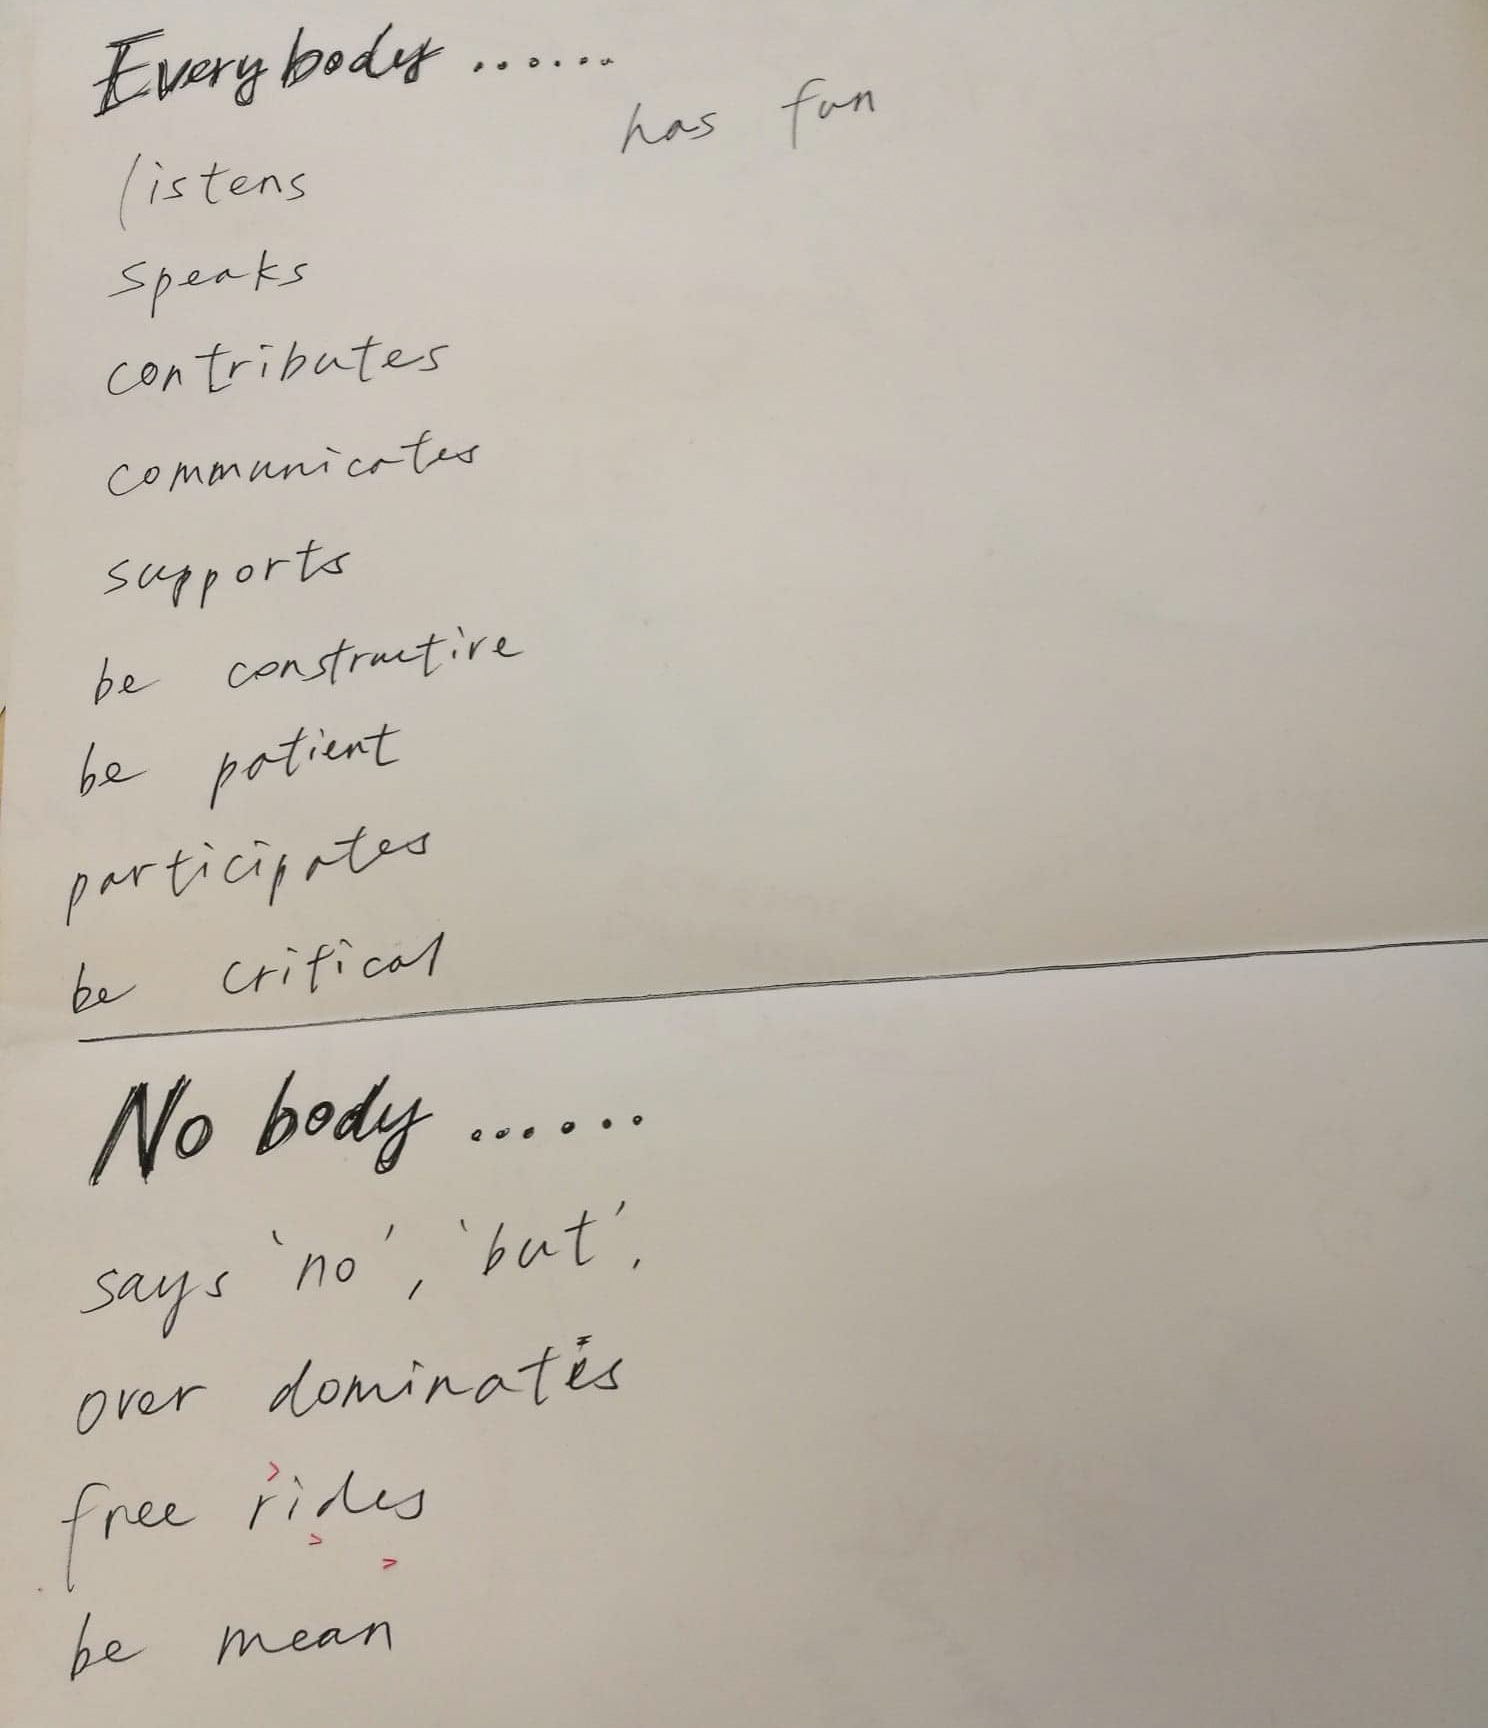 Everybody ......
has fun
listens
speaks
contributes
communicates
supports
be constructive
be patient
participates
be critical
No body ......
says 'no', 'but',
over dominates
free rides
be mean